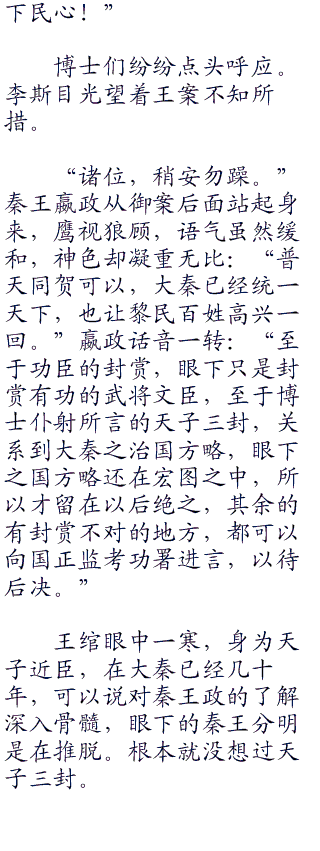 下民心！”
博士们纷纷点头呼应。
李斯目光望着王案不知所
措。
“诸位，稍安勿躁。”
秦王嬴政从御案后面站起身
来，鹰视狼顾，语气虽然缓
和，神色却凝重无比：“普
天同贺可以，大秦已经统一
天下，也让黎民百姓高兴一
回。”嬴政话音一转：“至
于功臣的封赏，眼下只是封
赏有功的武将文臣，至于博
士仆射所言的天子三封，关
系到大秦之治国方略，眼下
之国方略还在宏图之中，所
以才留在以后绝之，其余的
有封赏不对的地方，都可以
向国正监考功署进言，以待
后决。”
王绾眼中一寒，身为天
子近臣，在大秦已经几十
年，可以说对秦王政的了解
深入骨髓，眼下的秦王分明
是在推脱。根本就没想过天
子三封。